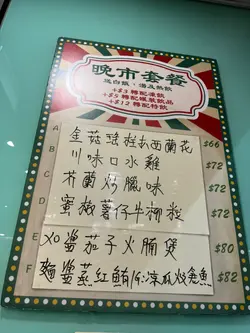 晚市套餐
送白飯、湯及熱飲
+$3 轉配凍飲
+$5 轉配罐裝飲品
+$12 轉配特飲
A 金菇瑤柱扒西蘭花 $66
B 川味口水雞 $72
C 芥蘭炒臘味 $72
D 蜜椒薯仔牛柳粒 $72
E XO醬茄子火腩煲 $80
F 麵醬蒸紅鮪 G:涼瓜炆魚 $82